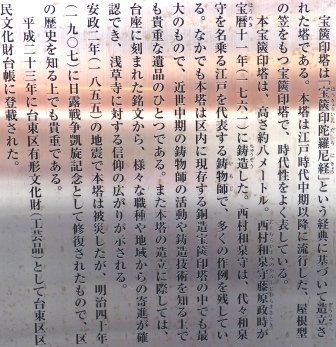 宝篋印塔は「宝篋印陀羅尼経」という経典に基づいて造立さ
れた塔である。本塔は江戸時代中期以降に流行した、屋根型
の笠をもつ宝篋印塔で、時代性をよく表している。
本宝篋印塔は、高さ約八メートル。西村和泉守藤原政時が
宝暦十一年(一七六一)に鋳造した。西村和泉守は、代々和泉
守を名乗る江戸を代表する鋳物師で、多くの作例を残してい
る。なかでも本塔は区内に現存する銅造宝篋印塔の中でも最
大のもので、近世中期の鋳物師の活動や鋳造技術を知る上で
も貴重な遺品のひとつである。また本塔の造立に際しては、
台座に刻まれた銘文から、様々な職種や地域からの寄進が確
認でき、浅草寺に対する信仰の広がりが示される。
安政二年(一八五五)の地震で本塔は被災したが、明治四十年
(一九〇七)に日露戦争凱旋記念として修復されたもので、区
の歴史を知る上でも貴重である。
平成二十三年に台東区有形文化財(工芸品)として台東区区
民文化財台帳に登載された。